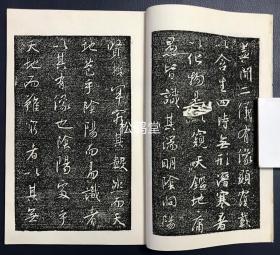 蓋聞二儀有像顯覆載
以含生四時無形潛寒暑
以化物是以窺天鑒地庸
愚皆識其端明陰洞陽
賢哲罕窮其數然而天
地苞乎陰陽而易識者
以其有像也陰陽處乎
天地而難窮者以其無